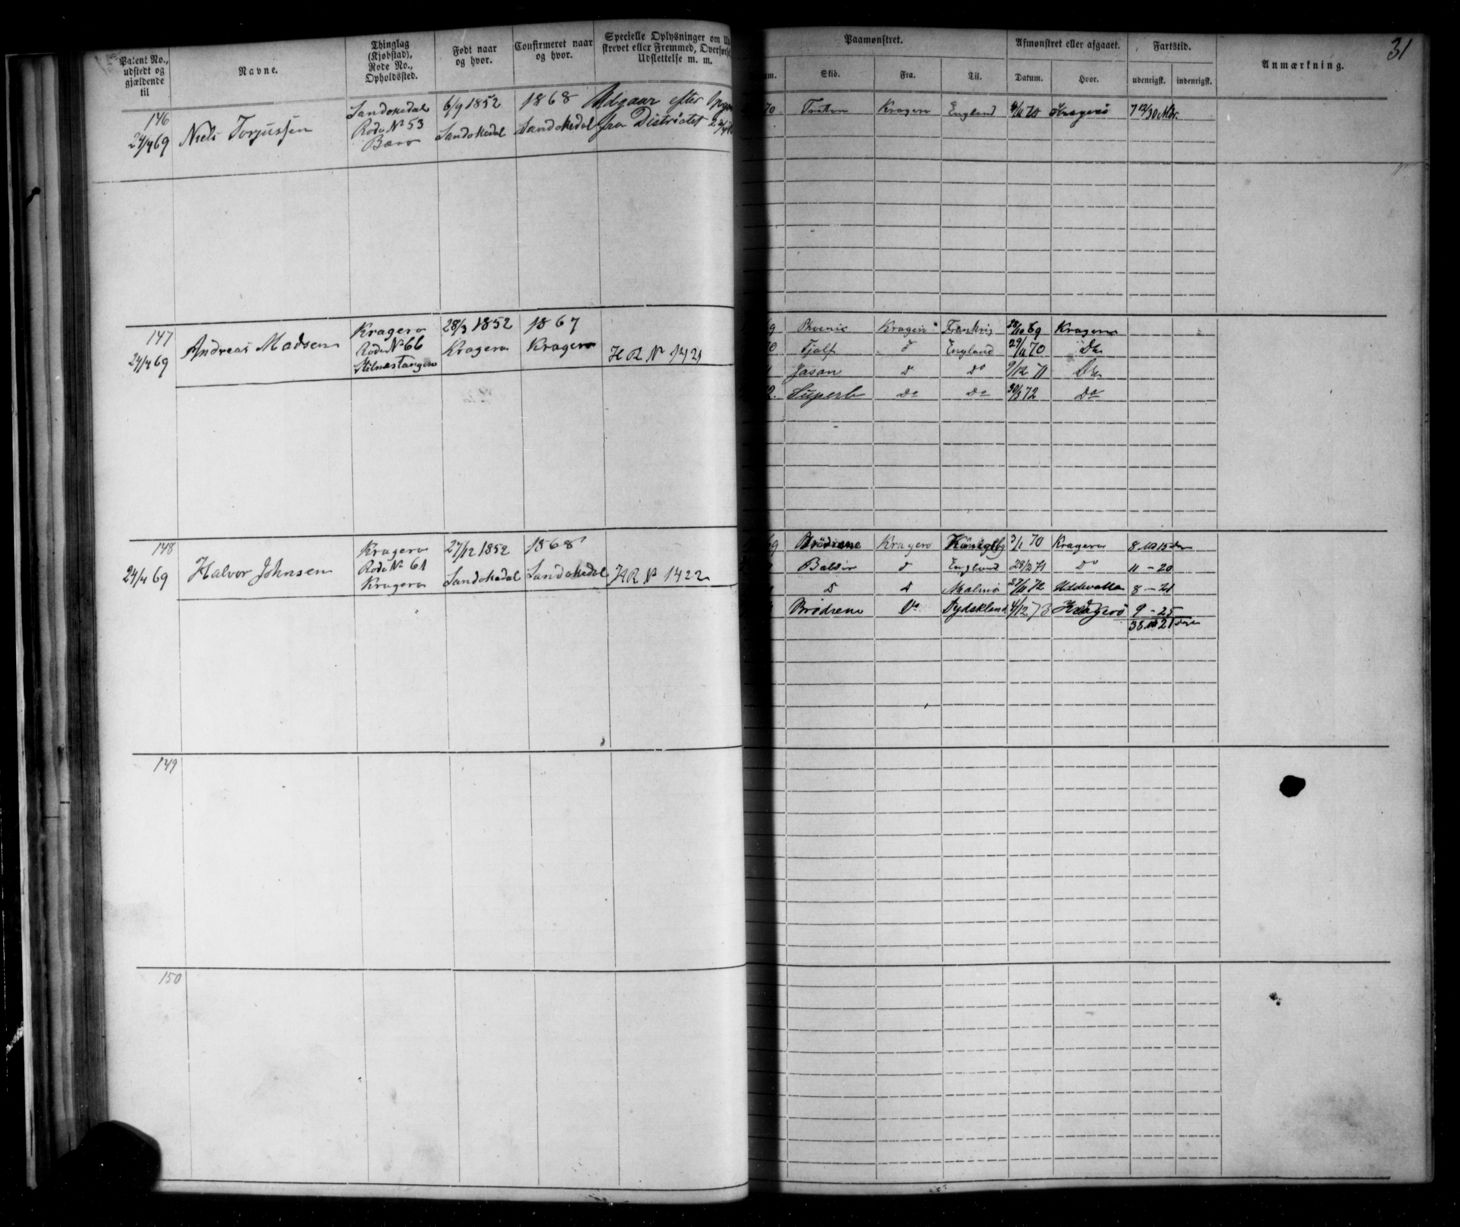 31
Patent No., udstedt og gjældende til
Navne.
Thinglag (Kjøbstad), Rode No., Opholdssted.
Født naar og hvor.
Confirmeret naar og hvor.
Specielle Oplysninger om
strevet eller Fremmed, Overført
Udslettelse m. m.
Paamønstret.
Afmønstret eller afgaaet.
Fartstid.
Anmærkning.
Skib.
Fra.
Til.
Datum.
Hvor.
udenrigsk.
indenrigsk.
146
24/4 69
Niels Torjussen
Sandøkedal
Rode No 53
Barø
6/9 1852
Sandøkedal
1868
Sandøkedal
Udgaar efter
fra Distriktet
70 Triton Kragerø England Kragerø
147
24/4 69
Andreas Madsen
Kragerø
Rode No 66
Stilnestangen
28/3 1852
Kragerø
1867
Kragerø
HR No 1421
Kragerø Frankrig 69 Kragerø
Fjalf d England 29/11 70 Do
Jasan d do 9/12 71 Do
Superb do do 30/3 72 do
148
24/4 69
Halvor Johnsen
Kragerø
Rode No 61
Kragerø
27/12 1852
Sandøkedal
1868
Sandøkedal
HR No 1422
Brødrene Kragerø 3/1 70 Kragerø
Baldur d England do 11 - 20
D d Malmø 27/11 72 Uddevalla 8 - 21
Brødrene Do Tydskland 4/12 73 Kragerø 9 - 25
149
150